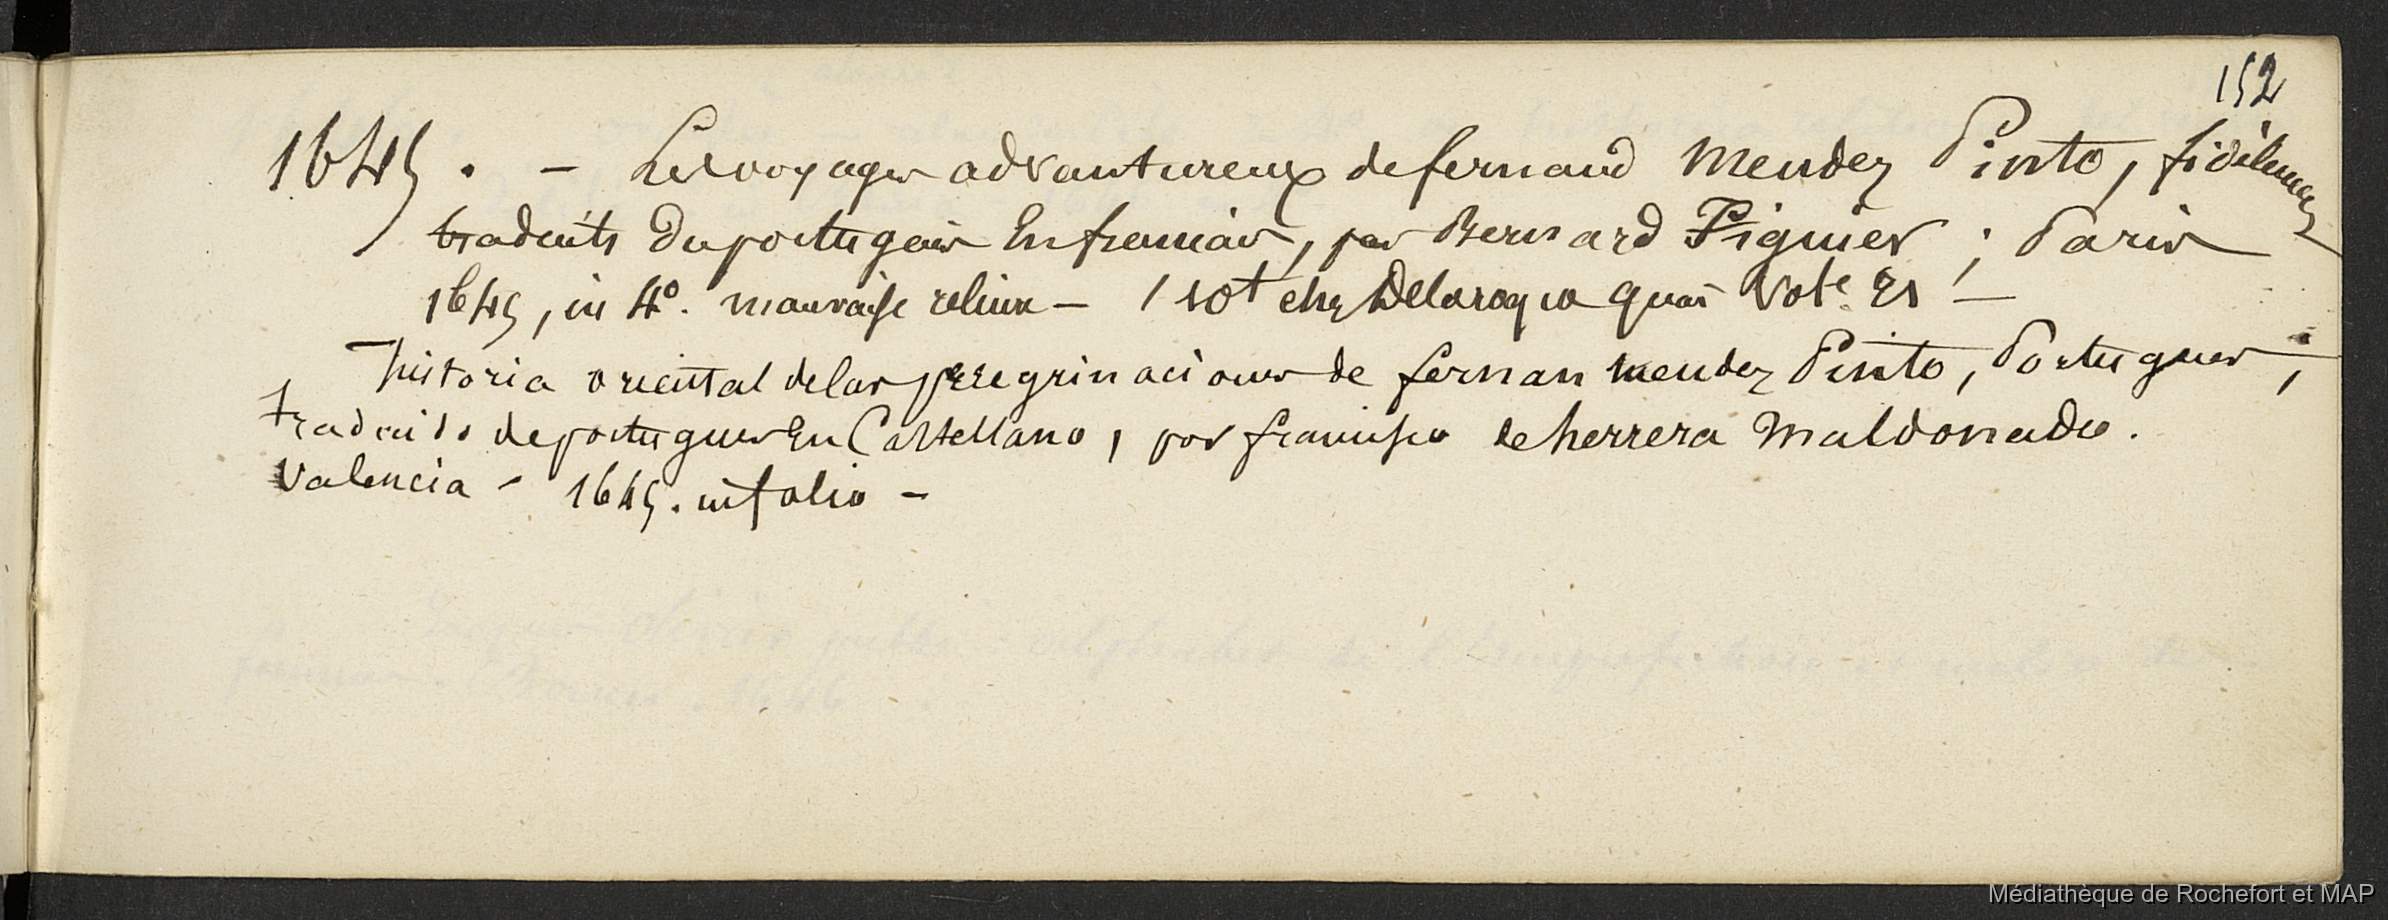 152
1645. – Les voyages advantureux de fernand Mendez Pinto, fidèlement
traduits du portugais En francais, par Bernard Figuier ; Paris
1645, in 4°. mauvaise reliure – / sot chez Delaroque quai Vol.re 21 / –
historia oriental de las peregrinaciones de fernan mendez Pinto, Portugues ;
traduido de portugues En Castellano, por francisco de herrera Maldonado.
Valencia – 1645. in folio –
Médiathèque de Rochefort et MAP